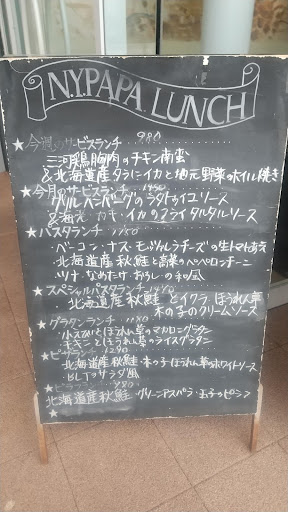 N.Y.PAPA LUNCH
★今週のサービスランチ 980
三河鶏胸肉のチキン南蛮
&北海道産タラにイカと地元野菜のホイル焼き
★今月のサービスランチ
グリルハンバーグのラタトゥイユソース
&海老・カキ・イカのフライタルタルソース
★パスタランチ
・ベーコン・ナス・モッツァレラチーズの生トマトあえ
・北海道産秋鮭と高菜のペペロンチーニ
・ツナ・なめたけ・おろしの和風
★スペシャルパスタランチ
北海道産秋鮭とイクラほうれん草
木の子のクリームソース
★グラタンランチ
・小エビとほうれん草のマカロニグラタン
・チキンとほうれん草のライスグラタン
★ピザランチ 1290
・北海道産秋鮭・木の子・ほうれん草のホワイトソース
・BLTのサラダ風
ランチ 980
北海道産秋鮭・グリーンアスパラ・玉子のピラフ